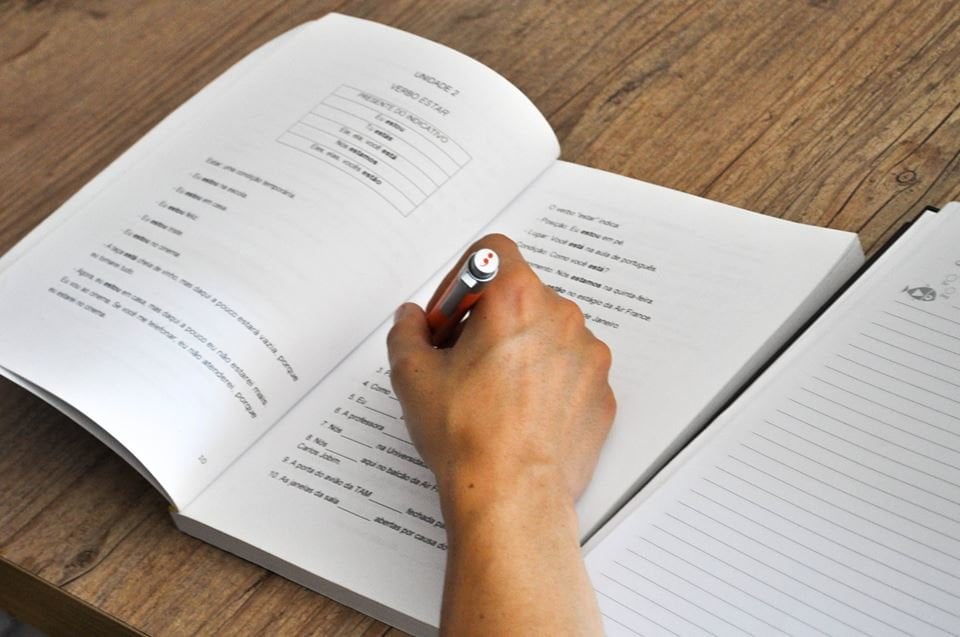 UNIDADE 2
VERBO ESTAR
PRESENTE DO INDICATIVO
Eu estou
Tu estás
Ele, ela, você está
Nós estamos
Eles, elas, vocês estão
Estar: uma condição temporária
- Eu estou na escola.
- Eu estou em casa.
- Eu estou feliz.
- Eu estou triste.
- Eu estou no cinema.
- A taça está cheia de vinho, mas daqui a pouco estará vazia, porque
eu tomarei tudo.
- Agora, eu estou em casa, mas daqui a pouco eu não estarei mais.
Eu vou ao cinema. Se você me telefonar, eu não atenderei, porque
eu estarei no cinema.
O verbo "estar" indica:
- Posição: Eu estou em pé.
- Lugar: Você está na aula de português.
Condição: Como você está?
mento: Nós estamos na quinta-feira.
estão no estágio da Air France.
de Janeiro.
3.
4. Como
5. Eu
6. A professora
7. Nós na Universidade
8. Nós aqui no balcão da Air F
Carlos Jobim.
9. A porta do avião da TAM fechada
10. As janelas da sala abertas por causa do